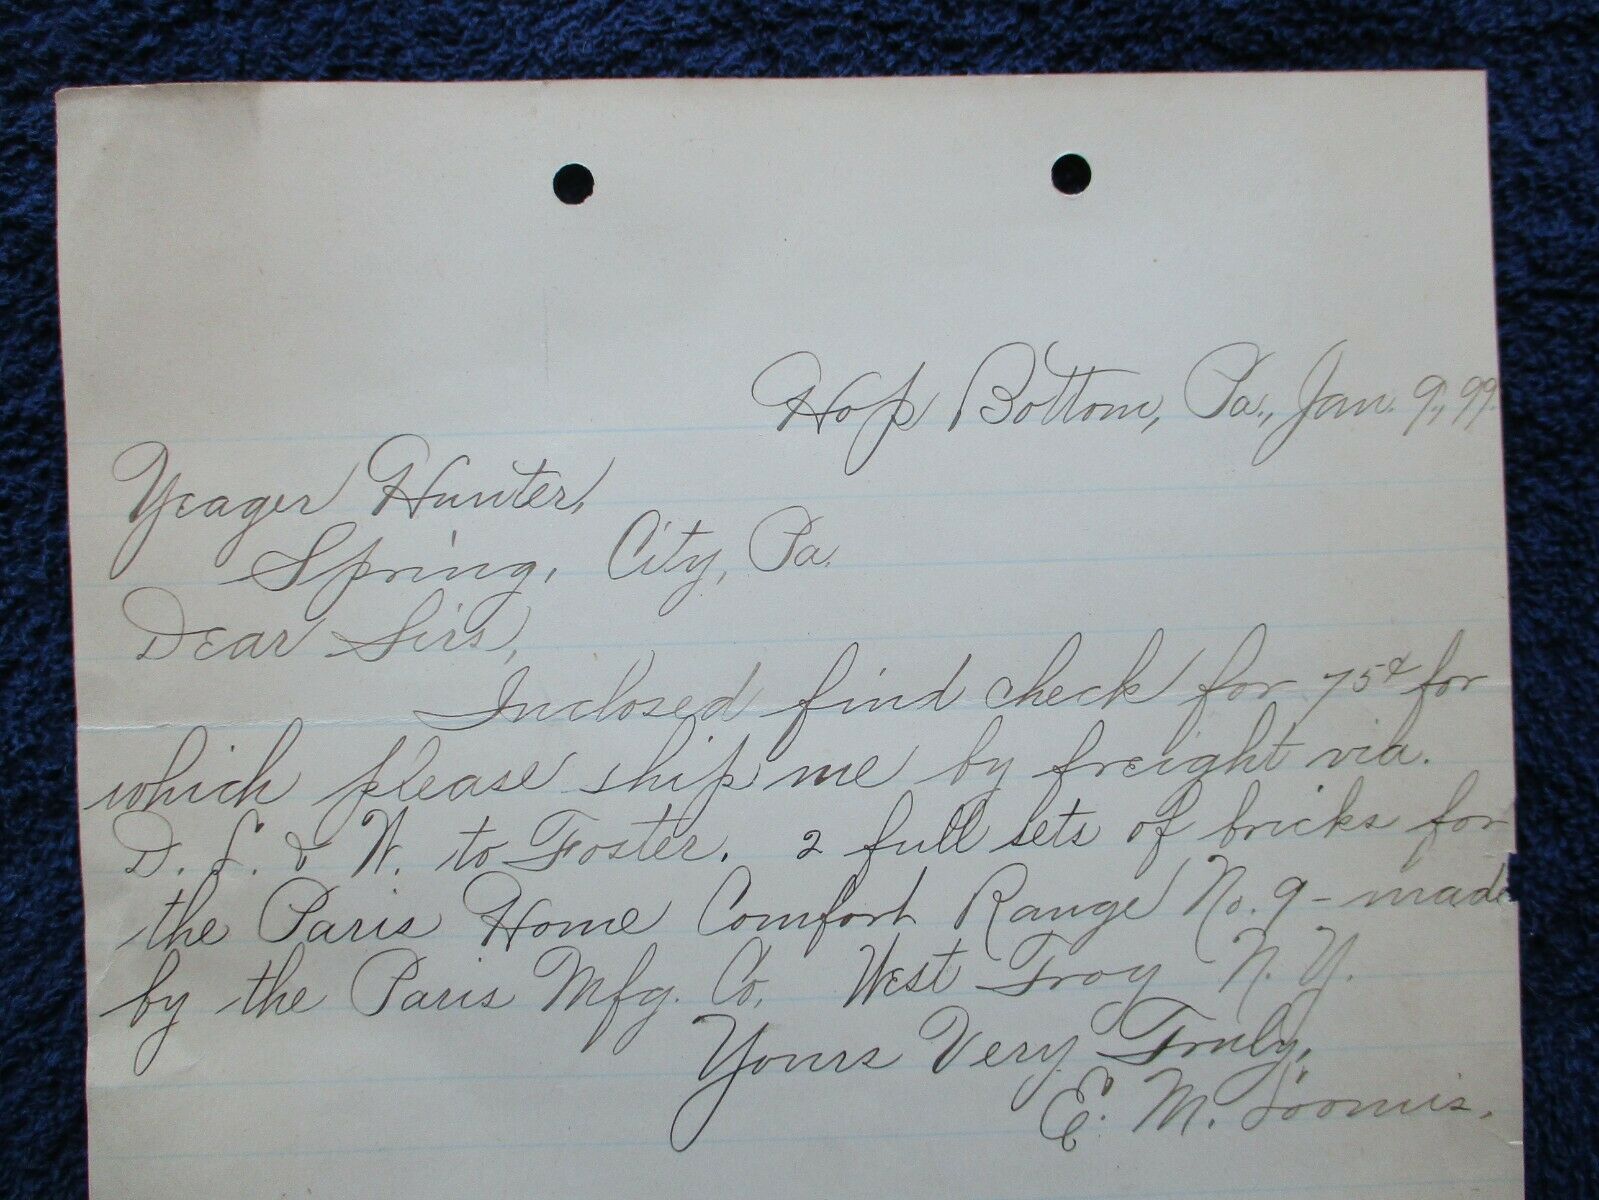 Hop Bottom, Pa., Jan. 9, 99.
Yeager Hunter,
Spring, City, Pa.
Dear Sirs,
Inclosed find check for 75¢ for
which please ship me by freight via.
D. L. & W. to Foster. 2 full sets of bricks for
the Paris Home Comfort Range No. 9 - made
by the Paris Mfg. Co. West Troy N. Y.
Yours Very Truly,
E. M. Loomis.